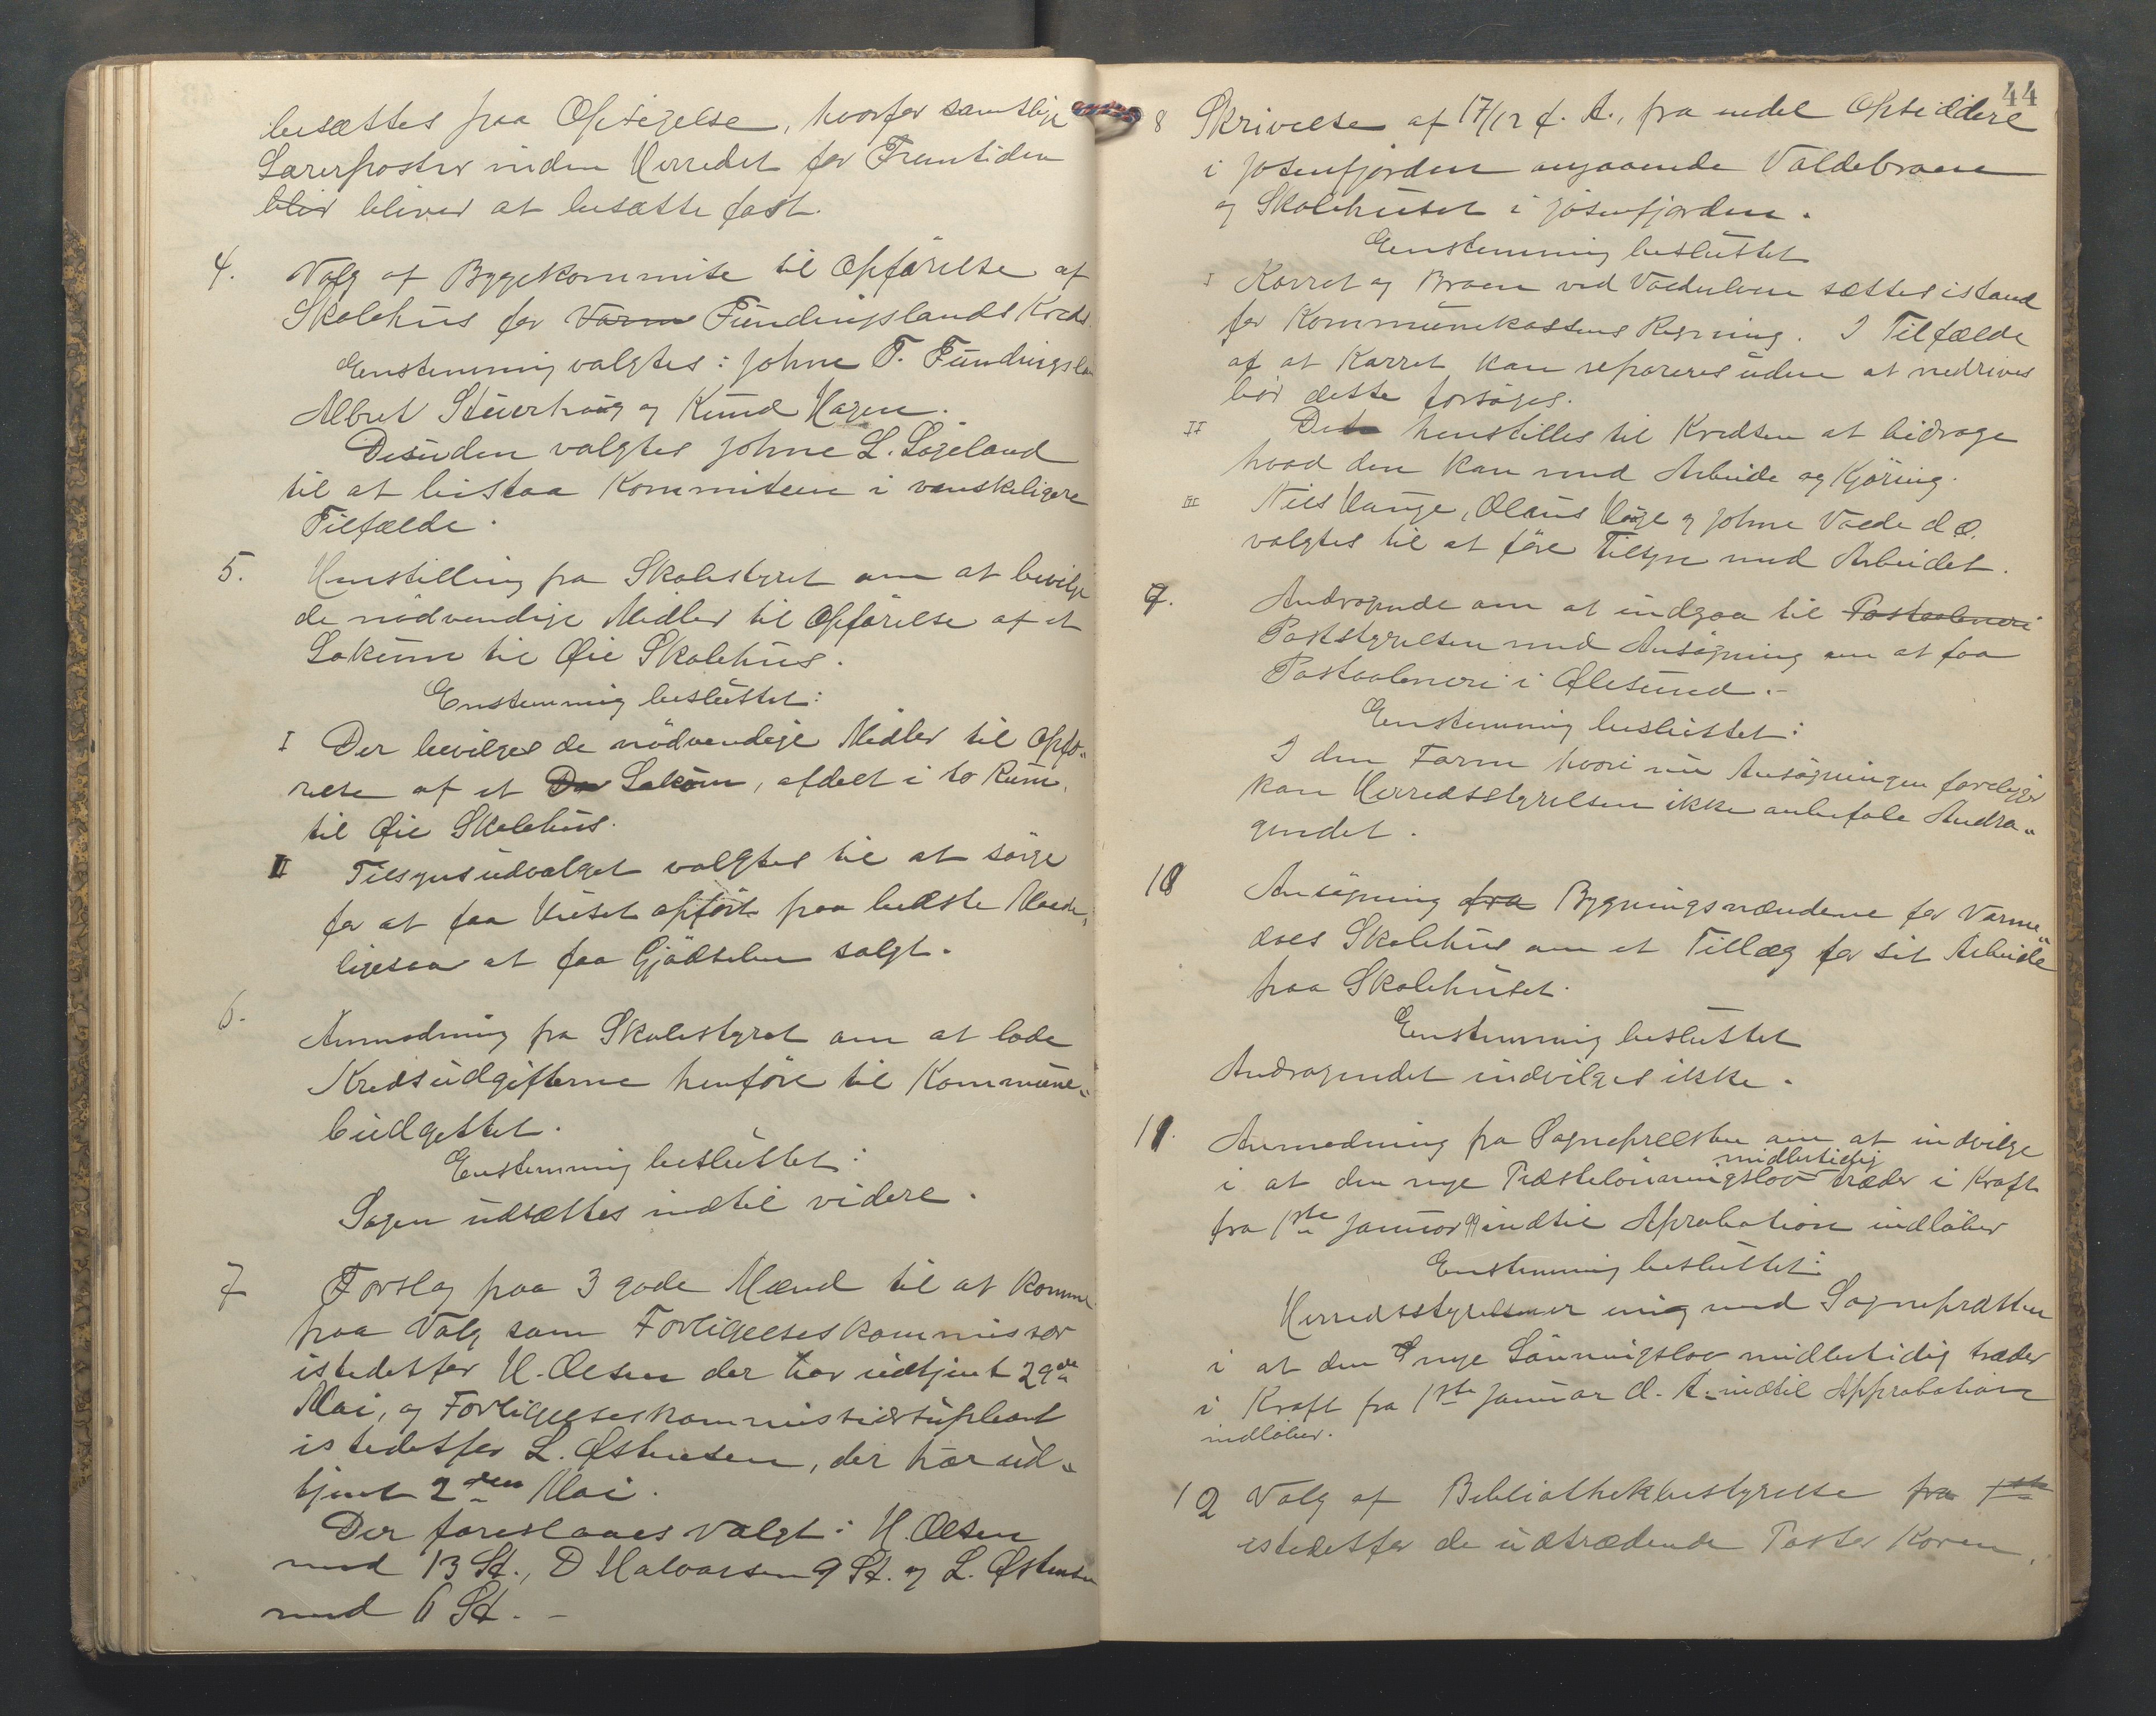 besættes paa Opsigelse, hvorfor samtlige
Lærerposter inden Herredet for Fremtiden
blir bliver at besætte fast.
4. Valg af Byggekommite til Opførelse af
Skolehus for Varm Fundingslands Kreds.
Enstemmig valgtes: Johne T. Fundingsla
Albret Stuverhaug og Knud Hagen.
Desuden valgtes Johne L. Løgeland
til at bistaa Kommiteen i vanskeligere
Tilfælde.
5. Henstilling fra Skolestyret om at bevilge
de nødvendige Midler til Opførelse af et
Lokum til Øie Skolehus.
Enstemmig besluttet:
I Der bevilges de nødvendige Midler til Opfø-
relse af et Do Lokum, afdelt i to Rum,
til Øie Skolehus.
II Tilsynsudvalget valgtes til at sørge
for at faa Huset opført paa bedste Maade,
ligesaa at faa Gjødselen solgt.
6. Anmodning fra Skolestyret om at lade
Kredsudgifterne henføre til Kommune-
budgettet.
Enstemmig besluttet:
Sagen udsættes indtil videre.
7 Forslag paa 3 gode Mænd til at komme
paa Valg som Forligelseskommissær
istedetfor H. Olsen der har udtjent 29de
Mai, og Forligelseskommissærsupleant
istedetfor L. Østensen, der har ud-
tjent 2den Mai.
Der foreslaaes valgt: H. Olsen
med 13 St., D Halvorsen 9 St. og L. Østensen
med 6 St. –
44
8 Skrivelse af 17/12 f. A., fra endel Opsiddere
i Jøsenfjorden angaaende Valdebroen
og Skolehuset i Jøsenfjorden.
Enstemmig besluttet
I Karret og Broen ved Valdeelven sættes istand
for Kommunekassens Regning. I Tilfælde
af at Karret kan repareres uden at nedrives
bør dette forsøges.
II Det henstilles til Kredsen at bidrage
hvad den kan med Arbeide og Kjøring.
III Niels Hauge, Olaus Hage og Johne Valde d. æ.
valgtes til at føre Tilsyn med Arbeidet.
9. Andragende om at indgaa til Postaabneri
Poststyrelsen med Ansøgning om at faa
Postaabneri i Ølesund. –
Enstemmig besluttet:
I den Form hvori nu Ansøgningen foreligger
kan Herredsstyrelsen ikke anbefale Andra-
gendet.
10 Ansøgning fra Bygningsmændene for Varme-
daes Skolehus om et Tillæg for sit Arbeide
paa Skolehuset.
Enstemmig besluttet
Andragendet indvilges ikke.
11. Anmodning fra Sognepresten om at indvilge
i at den nye Præstelønningslov midlertidig træder i Kraft
fra 1ste Januar 99 indtil Aprobation indløber
Enstemmig besluttet:
Herredsstyrelsen er enig med Sognepræsten
i at den nye Lønningslov midlertidig træder
i Kraft fra 1ste Januar d. A. indtil Approbation
indløber.
12 Valg af Bibliothekbestyrelse fra 1ste
istedetfor de udtrædende Pastor Koren,